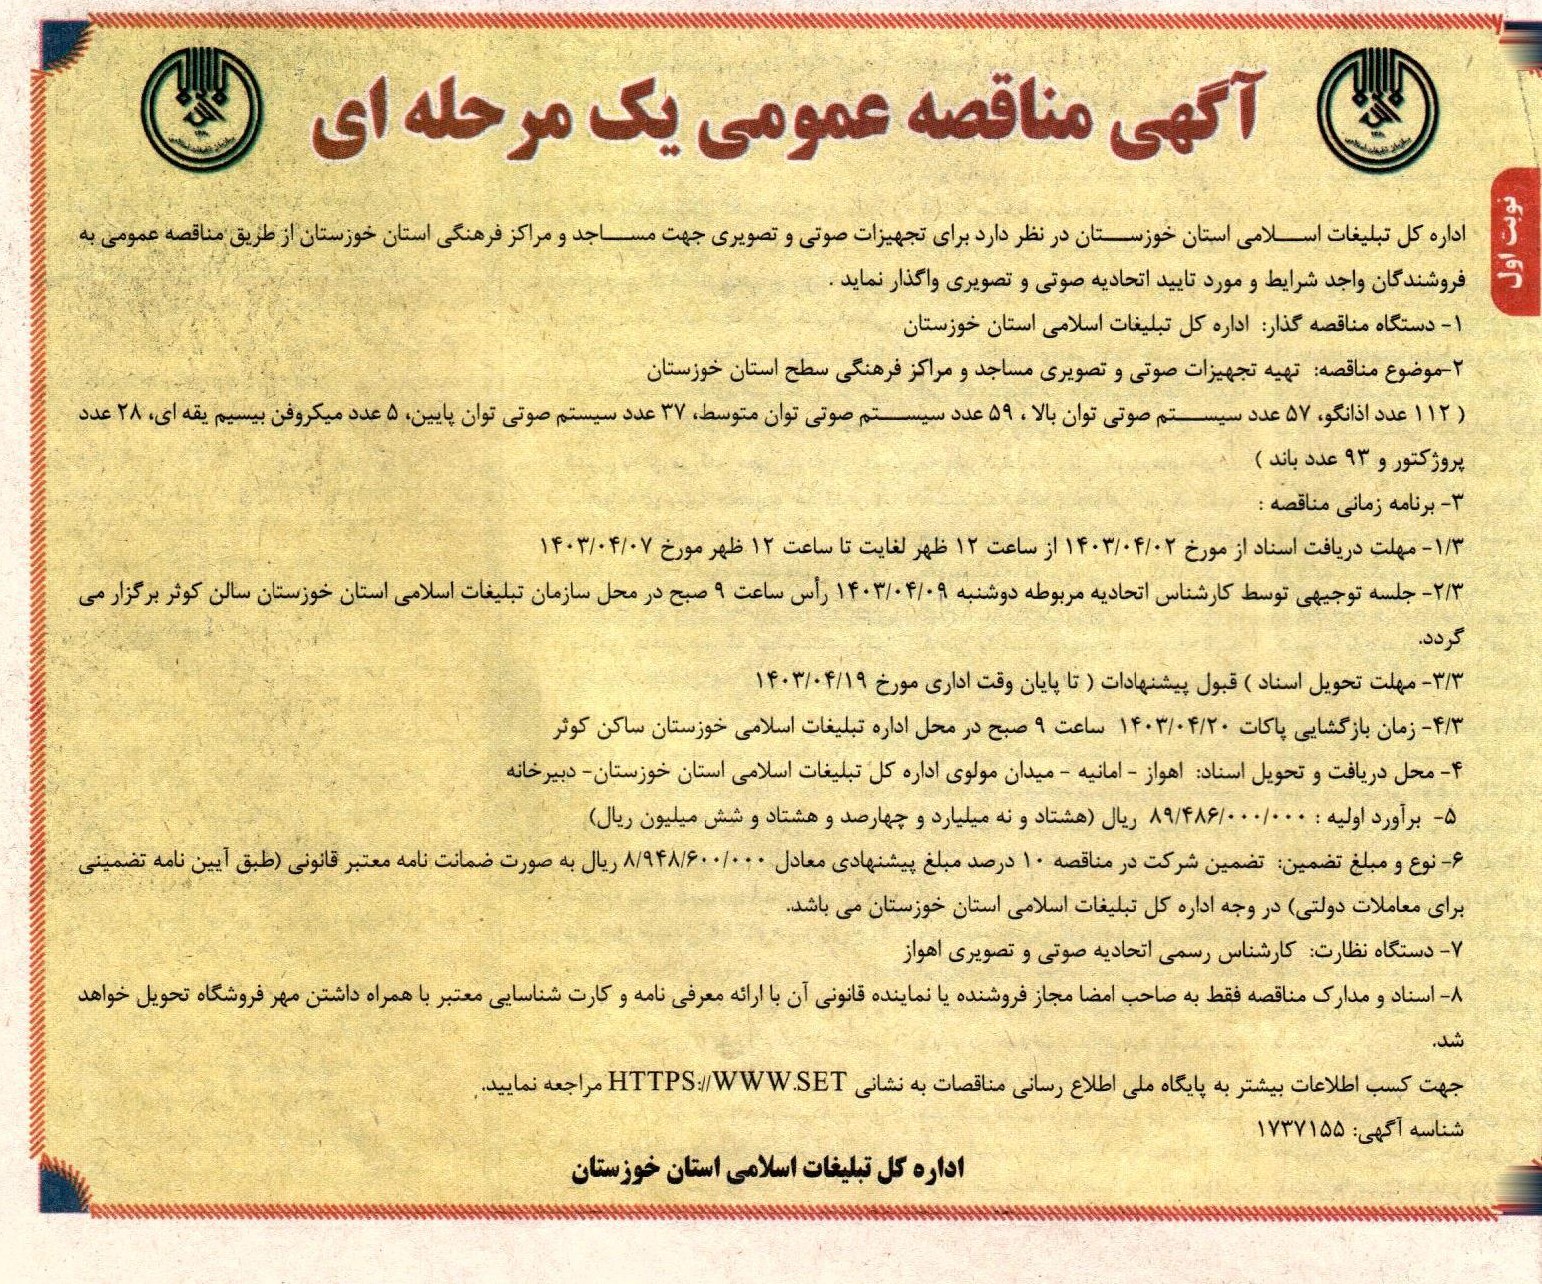 آگهی مناقصه عمومی یک مرحله ای
نوبت اول
اداره کل تبلیغات اسلامی استان خوزستان در نظر دارد برای تجهیزات صوتی و تصویری جهت مساجد و مراکز فرهنگی استان خوزستان از طریق مناقصه عمومی به
فروشندگان واجد شرایط و مورد تایید اتحادیه صوتی و تصویری واگذار نماید .
۱- دستگاه مناقصه گذار: اداره کل تبلیغات اسلامی استان خوزستان
۲-موضوع مناقصه: تهیه تجهیزات صوتی و تصویری مساجد و مراکز فرهنگی سطح استان خوزستان
( ۱۱۲ عدد اذانگو، ۵۷ عدد سیستم صوتی توان بالا ، ۵۹ عدد سیستم صوتی توان متوسط، ۳۷ عدد سیستم صوتی توان پایین، ۵ عدد میکروفن بیسیم یقه ای، ۲۸ عدد
پروژکتور و ۹۳ عدد باند )
۳- برنامه زمانی مناقصه :
۱/۳- مهلت دریافت اسناد از مورخ ۱۴۰۳/۰۴/۰۲ از ساعت ۱۲ ظهر لغایت تا ساعت ۱۲ ظهر مورخ ۱۴۰۳/۰۴/۰۷
۲/۳- جلسه توجیهی توسط کارشناس اتحادیه مربوطه دوشنبه ۱۴۰۳/۰۴/۰۹ رأس ساعت ۹ صبح در محل سازمان تبلیغات اسلامی استان خوزستان سالن کوثر برگزار می
گردد.
۳/۳- مهلت تحویل اسناد ) قبول پیشنهادات ( تا پایان وقت اداری مورخ ۱۴۰۳/۰۴/۱۹
۴/۳- زمان بازگشایی پاکات ۱۴۰۳/۰۴/۲۰ ساعت ۹ صبح در محل اداره تبلیغات اسلامی خوزستان ساکن کوثر
۴- محل دریافت و تحویل اسناد: اهواز - امانیه - میدان مولوی اداره کل تبلیغات اسلامی استان خوزستان- دبیرخانه
۵- برآورد اولیه : ۸۹/۴۸۶/۰۰۰/۰۰۰ ریال (هشتاد و نه میلیارد و چهارصد و هشتاد و شش میلیون ریال)
۶- نوع و مبلغ تضمین: تضمین شرکت در مناقصه ۱۰ درصد مبلغ پیشنهادی معادل ۸/۹۴۸/۶۰۰/۰۰۰ ریال به صورت ضمانت نامه معتبر قانونی (طبق آیین نامه تضمینی
برای معاملات دولتی) در وجه اداره کل تبلیغات اسلامی استان خوزستان می باشد.
۷- دستگاه نظارت: کارشناس رسمی اتحادیه صوتی و تصویری اهواز
۸- اسناد و مدارک مناقصه فقط به صاحب امضا مجاز فروشنده یا نماینده قانونی آن با ارائه معرفی نامه و کارت شناسایی معتبر با همراه داشتن مهر فروشگاه تحویل خواهد
شد.
جهت کسب اطلاعات بیشتر به پایگاه ملی اطلاع رسانی مناقصات به نشانی HTTPS://WWW.SET مراجعه نمایید.
شناسه آگهی: ۱۷۳۷۱۵۵
اداره کل تبلیغات اسلامی استان خوزستان